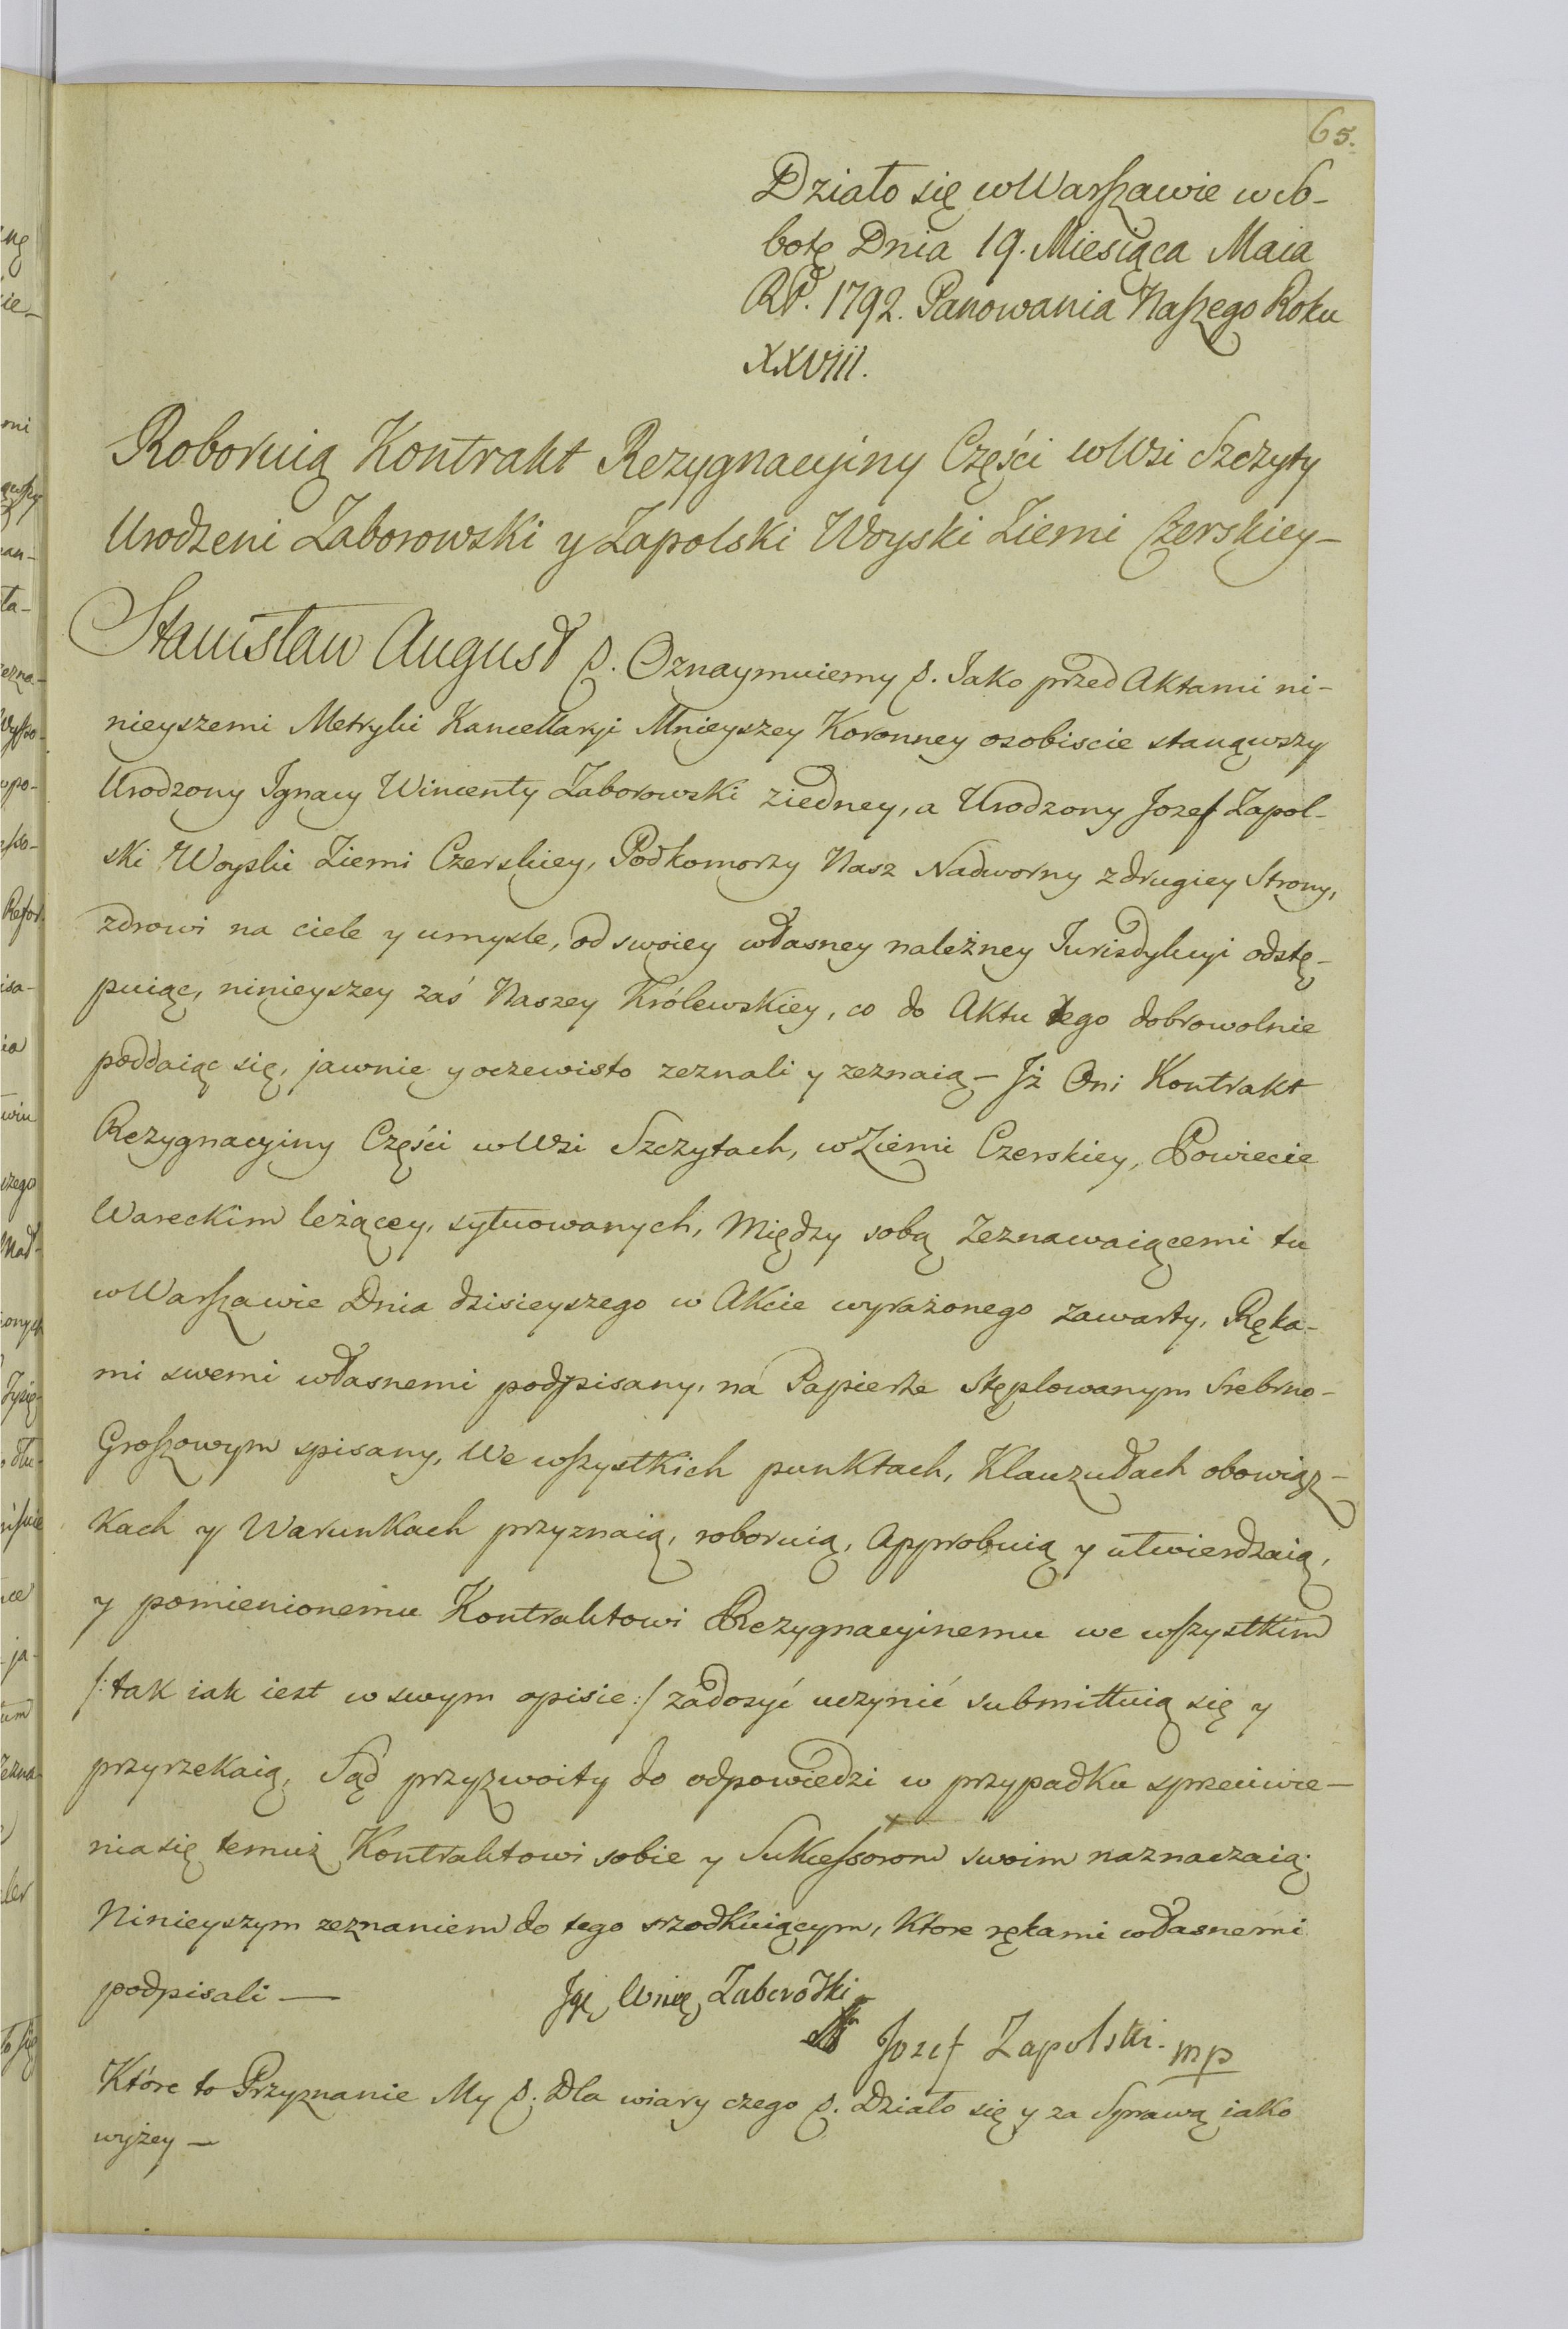 65.
Działo się w Warszawie w So-
botę Dnia 19. Miesiąca Maia
RP. 1792. Panowania Naszego Roku
XXVIII.
Roboruią Kontrakt Rezygnacyiny Części w Wsi Szczyty
Urodzeni Zaborowski y Zapolski Woyski Ziemi Czerskiey-
Stanisław August &. Oznaymuiemy &. Jako przed Aktami ni-
nieyszemi Metryki Kancellaryi Mnieyszey Koronney osobiscie stanąwszy
Urodzony Ignacy Wincenty Zaborowski z iedney, a Urodzony Jozef Zapol-
ski Woyski Ziemi Czerskiey, Podkomorzy Nasz Nadworny z drugiey Strony,
zdrowi na ciele y umysle, od swoiey własney należney Jurisdykcyi odstę-
puiąc, ninieyszey zaś Naszey Królewskiey, co do Aktu tego dobrowolnie
poddaiąc się, jawnie y oczewisto zeznali y zeznaią - Jż Oni Kontrakt
Rezygnacyiny Części w Wsi Szczytach, w Ziemi Czerskiey, Powiecie
Wareckim leżącey, sytuowanych, między sobą zeznawaiącemi tu
w Warszawie Dnia dzisieyszego w Akcie wyrażonego zawarty, Ręka-
mi swemi własnemi podpisany, na Papierze stęplowanym Srebrno-
Groszowym spisany, We wszystkich punktach, Klauzułach obowiąz-
kach y Warunkach przyznaią, roboruią, approbuią y utwierdzaią,
y pomienionemu Kontraktowi Rezygnacyinemu we wszystkim
/: tak iak iest w swym opisie :/ zadosyć uczynić submittuią się y
przyrzekaią, Sąd przyzwoity do odpowiedzi w przypadku sprzeciwie-
nia się temuż Kontraktowi sobie y Sukcessorom swoim naznaczaią.
Ninieyszym zeznaniem do tego srzodkuiącym, Ktore rękami własnemi
podpisali —
Zaborowski
Jozef Zapolski. mp
Które to Przyznanie My &. Dla wiary czego &. Działo się y za Sprawą iako
wyżey —